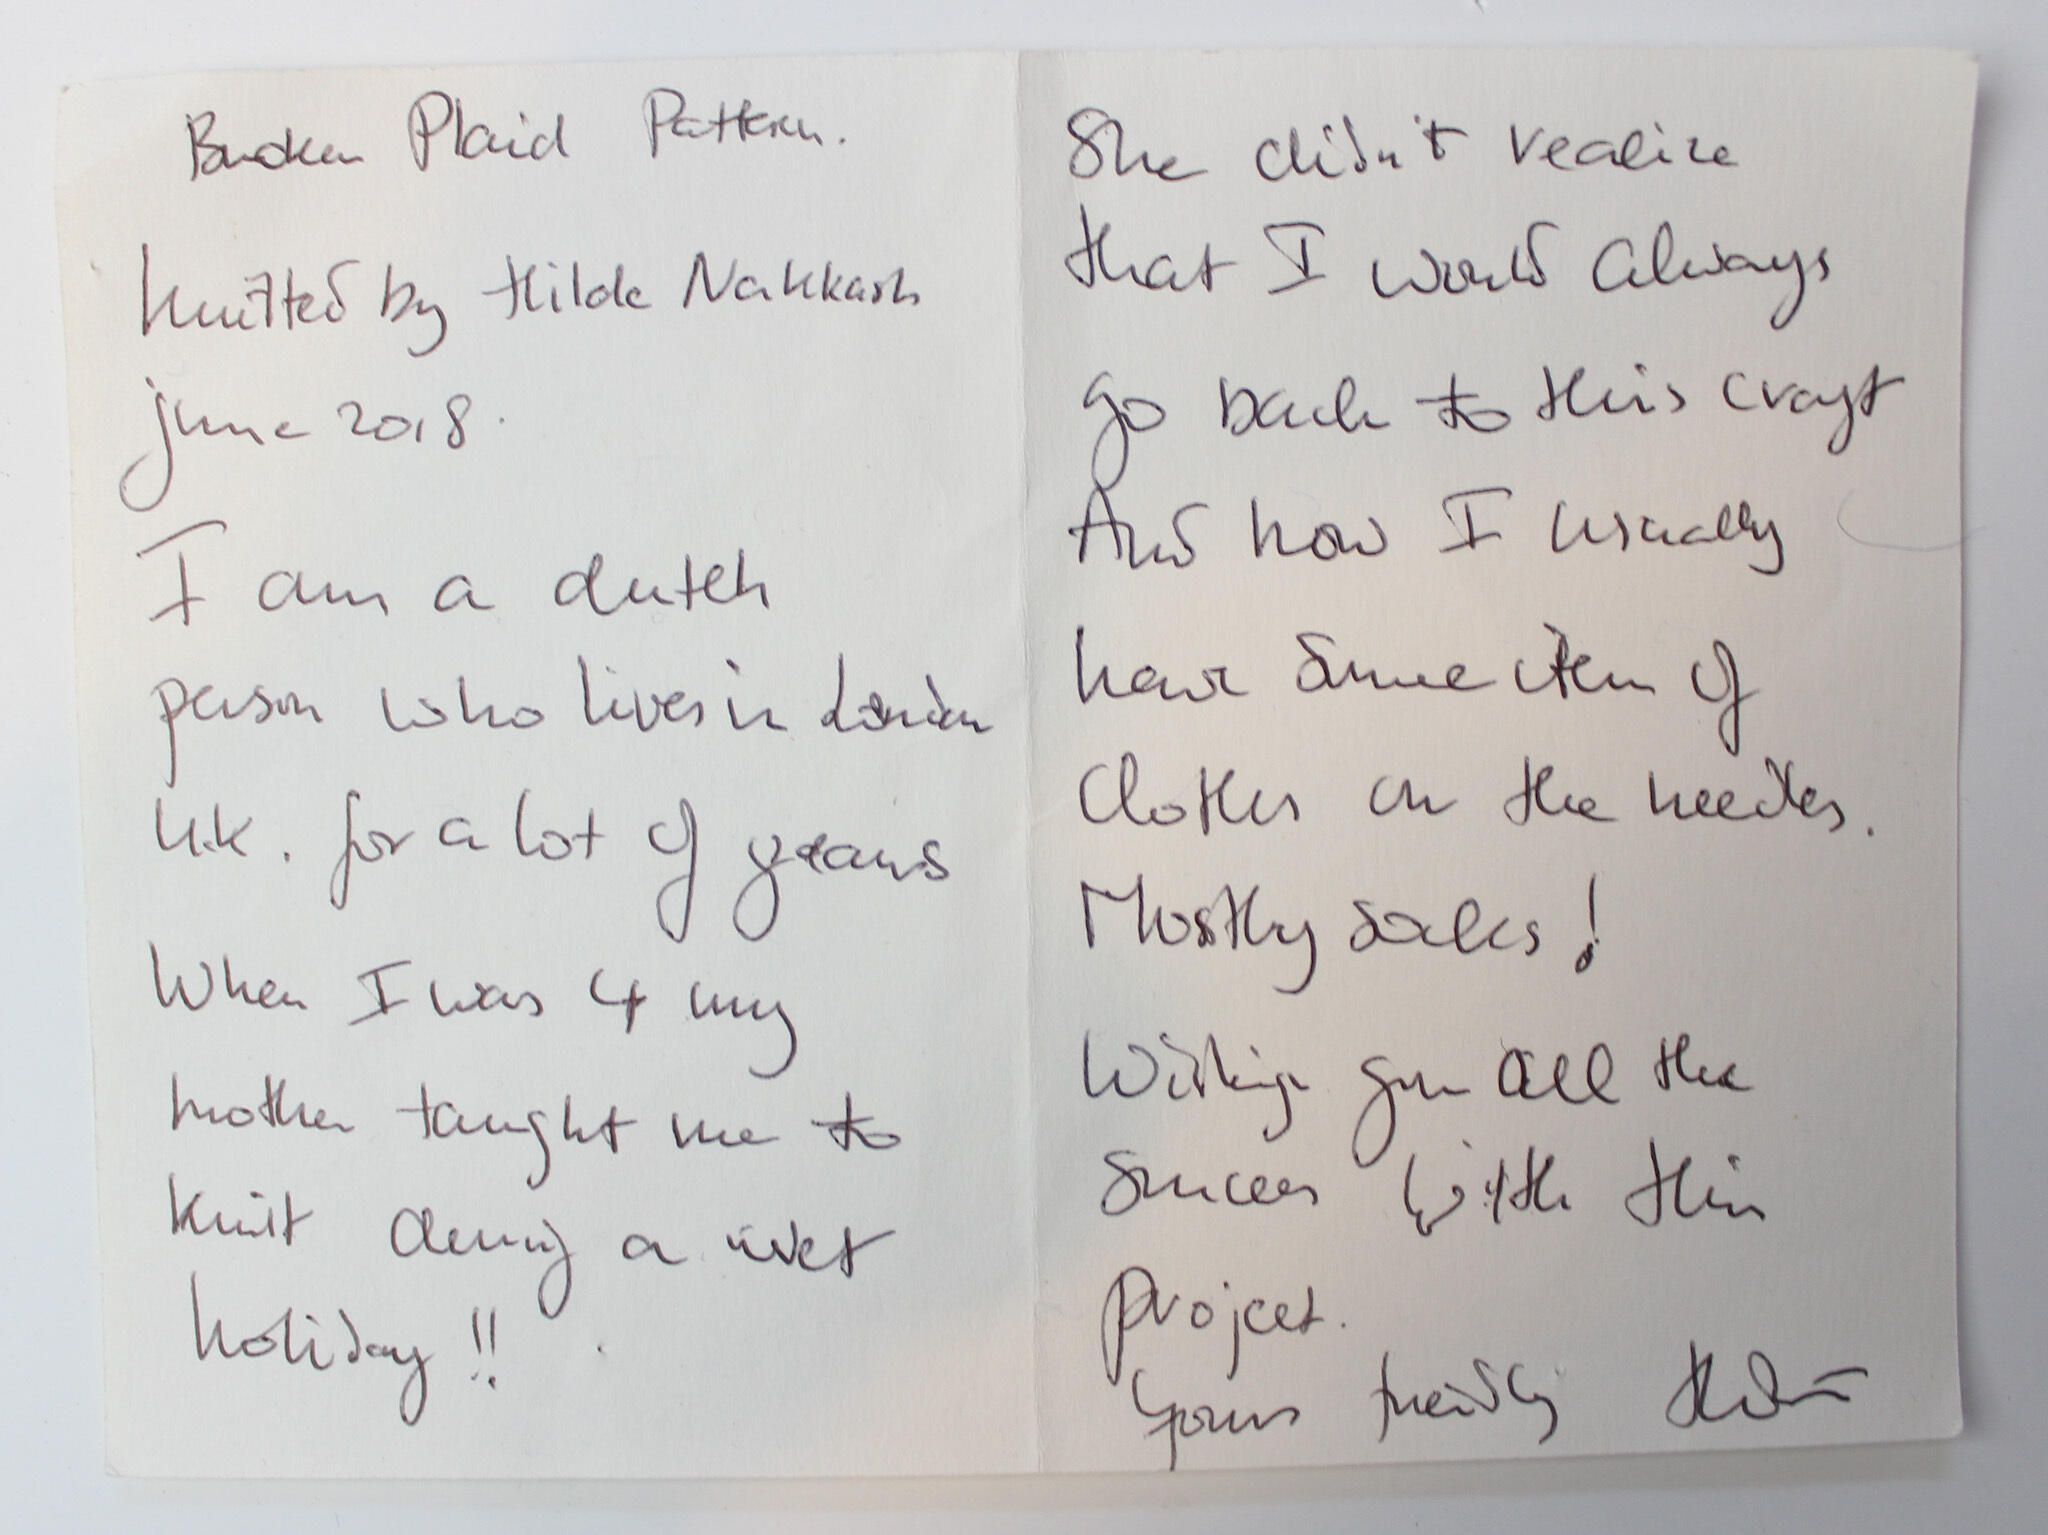 Broken Plaid Pattern.
Knitted by Hilde Nakkash
june 2018.
I am a dutch
person who lives in London
U.K. for a lot of years
When I was 4 my
mother taught me to
knit during a wet
holiday!!
She didn't realize
that I would always
go back to this craft
And now I usually
have some item of
Clothes on the needles.
Mostly socks!
Wishing you all the
success with this
project.
Yours friendly Hilde